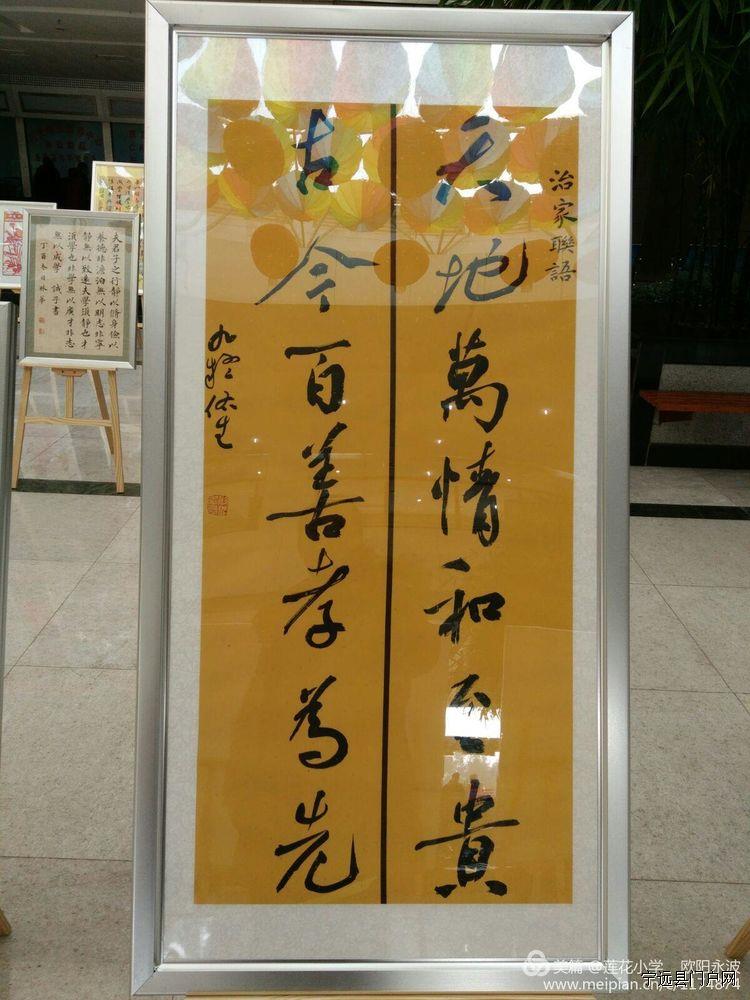 治家聯語
天地萬情和至貴
古今百善孝為先
夫君子之行靜以修身儉以
養德非澹泊無以明志非寧
靜無以致遠夫學須靜也才
須學也非學無以廣才非志
無以成學 誡子書
美篇 @莲花小学、欧阳永波
www.meipian.cn
宁远县门户网